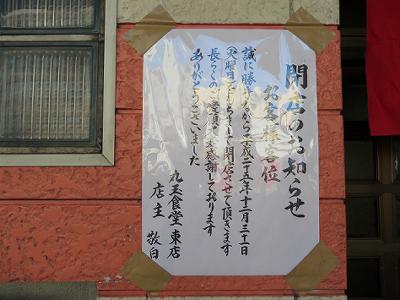 閉店のお知らせ
お客様各位
誠に勝手ながら平成二十五年十二月三十一日
(火曜日)をもちまして閉店させて頂きます
長らくのご愛顧を感謝しております
ありがとうございました
丸玉食堂 東店
店主 敬白